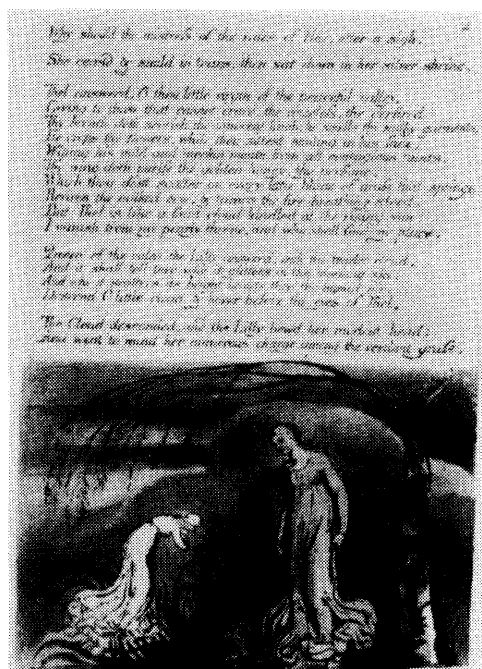 Why should the mistress of the vales of Har, utter a sigh.
She ceasd & smild in tears, then sat down in her silver shrine.
Thel answerd, O thou little virgin of the peaceful valley.
Giving to those that cannot crave, the voiceless, the o'ertired
Thy breath doth nourish the innocent lamb, he smells thy milky garments,
He crops thy flowers, while thou sittest smiling in his face,
Wiping his mild and meekin mouth from all contagious taints.
Thy wine doth purify the golden honey, thy perfume,
Which thou dost scatter on every little blade of grass that springs
Revives the milked cow, & tames the fire-breathing steed.
But Thel is like a faint cloud kindled at the rising sun:
I vanish from my pearly throne, and who shall find my place.
Queen of the vales the Lilly answerd, ask the tender cloud,
And it shall tell thee why it glitters in the morning sky,
And why it scatters its bright beauty thro the humid air.
Descend O little cloud & hover before the eyes of Thel.
The Cloud descended, and the Lilly bowd her modest head:
And went to mind her numerous charge among the verdant grass.